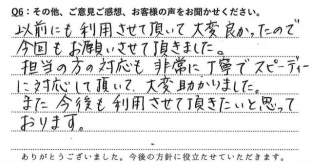 Q6：その他、ご意見ご感想、お客様の声をお聞かせください。
以前にも利用させて頂いて大変良かったので
今回もお願いさせて頂きました。
担当の方の対応も非常に丁寧でスピーディー
に対応して頂いて、大変助かりました。
また今後も利用させて頂きたいと思って
おります。
ありがとうございました。今後の方針に役立たせていただきます。